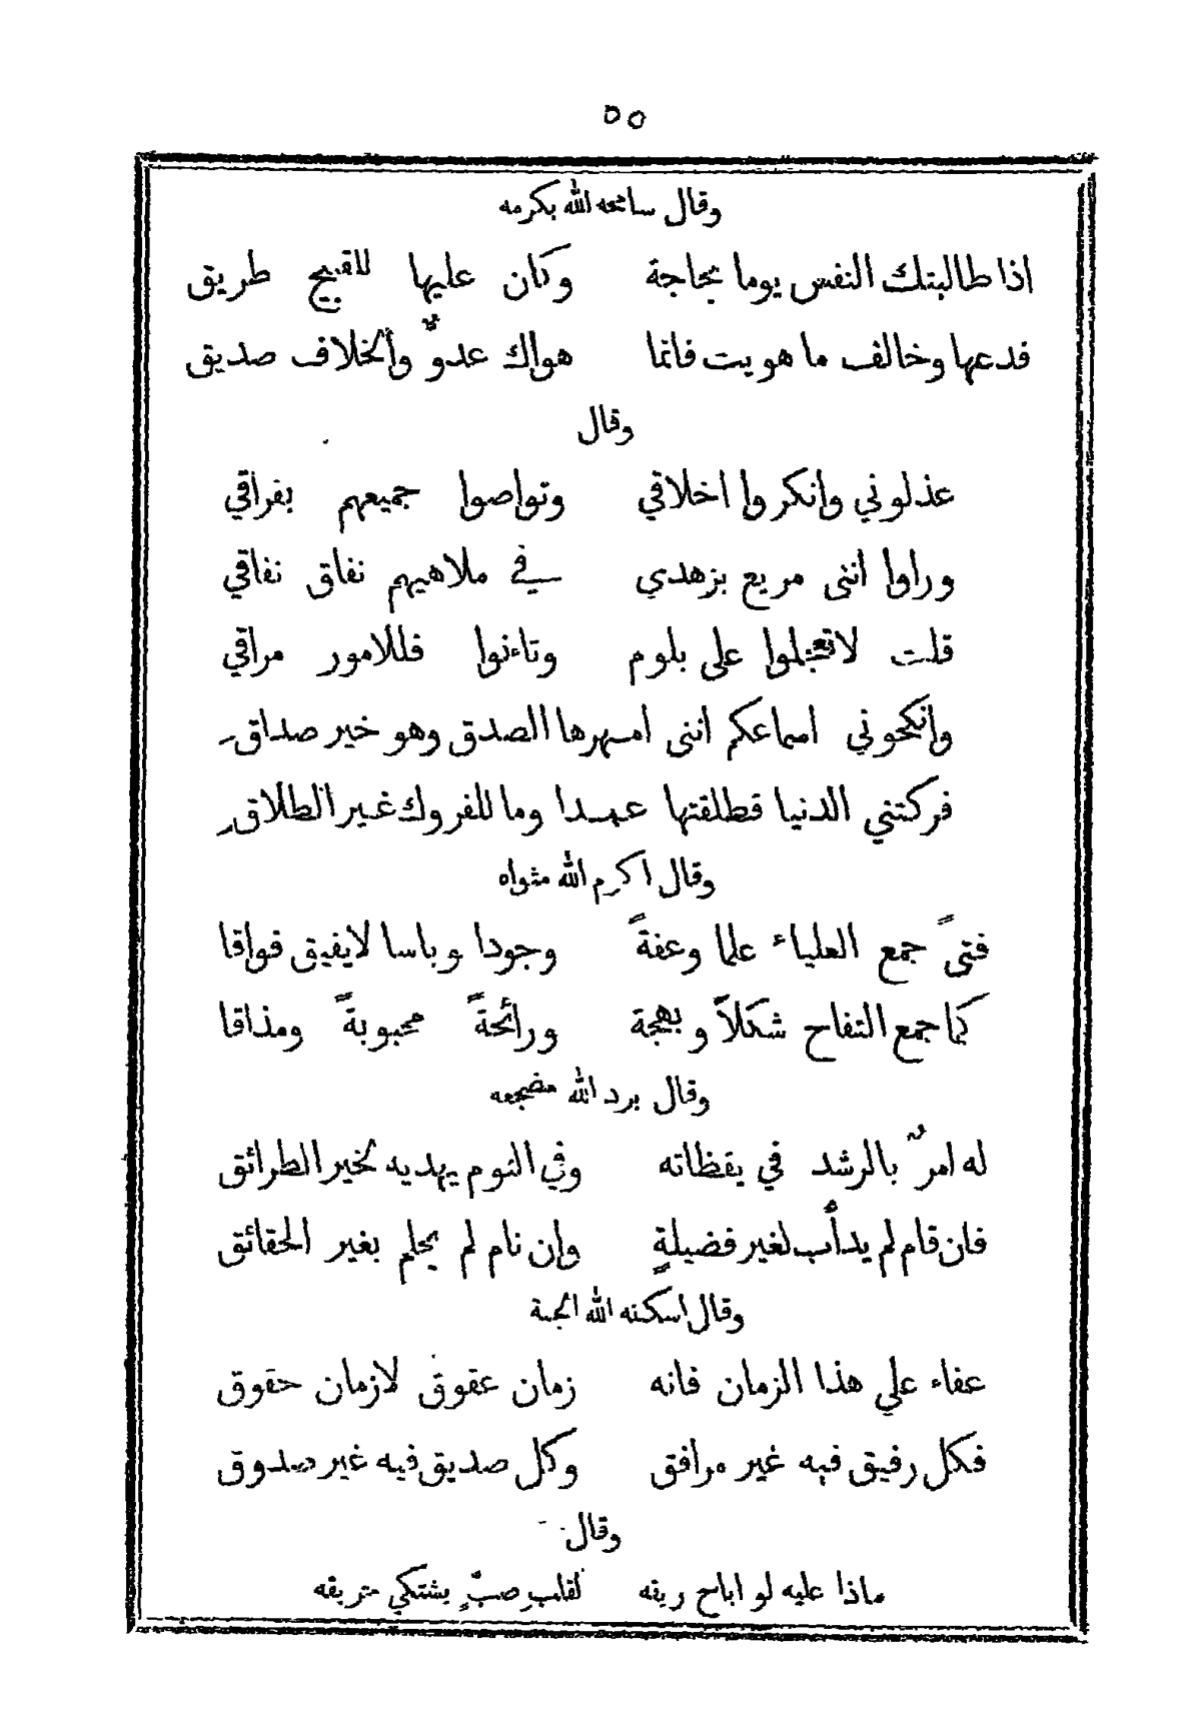 ٥٥
وقال سامحه الله بكرمه
اذا طالبتك النفس يوما بحاجة وكان عليها للقبيح طريق
فدعها وخالف ما هويت فانما هواك عدوٌّ والخلاف صديق
وقال
عذلوني وانكروا اخلاقي وتواصوا جميعهم بفراقي
وراوا اننى مريع بزهدي في ملاهيهم نفاق نفاقي
قلت لا تعجلوا على بلوم وتاءنوا فللامور مراقي
وانكحوني اسماعكم اننى امهرها الصدق وهو خير صداقِ
فركتني الدنيا فطلقتها عمدا وما للفروك غير الطلاقِ
وقال اكرم الله مثواه
فتىً جمع العلياء علما وعفةً وجودا وباسا لايفيق فواقا
كما جمع التفاح شكلاً وبهجة ورائحةً محبوبةً ومذاقا
وقال برد الله مضجعه
له امرٌ بالرشد في يقظاته وفي النوم يهديه لخير الطرائق
فان قام لم يدأب لغير فضيلةٍ وإن نام لم يحلم بغير الحقائق
وقال اسكنه الله الجنة
عفاء علي هذا الزمان فانه زمان عقوق لازمان حقوق
فكل رفيق فيه غير مرافق وكل صديق فيه غير صدوق
وقال
ماذا عليه لو اباح ريقه لقلبِ صبٍّ يشتكي حريقه